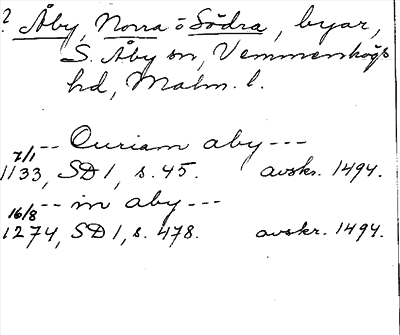 ? Åby, Norra o Södra, byar,
S. Åby sn, Vemmenhögs
hd, Malm. l.
-- Curiam aby ---
7/1
1133, SD 1, s. 45. avskr. 1494.
-- in aby ---
16/8
1274, SD 1, s. 478. avskr. 1494.